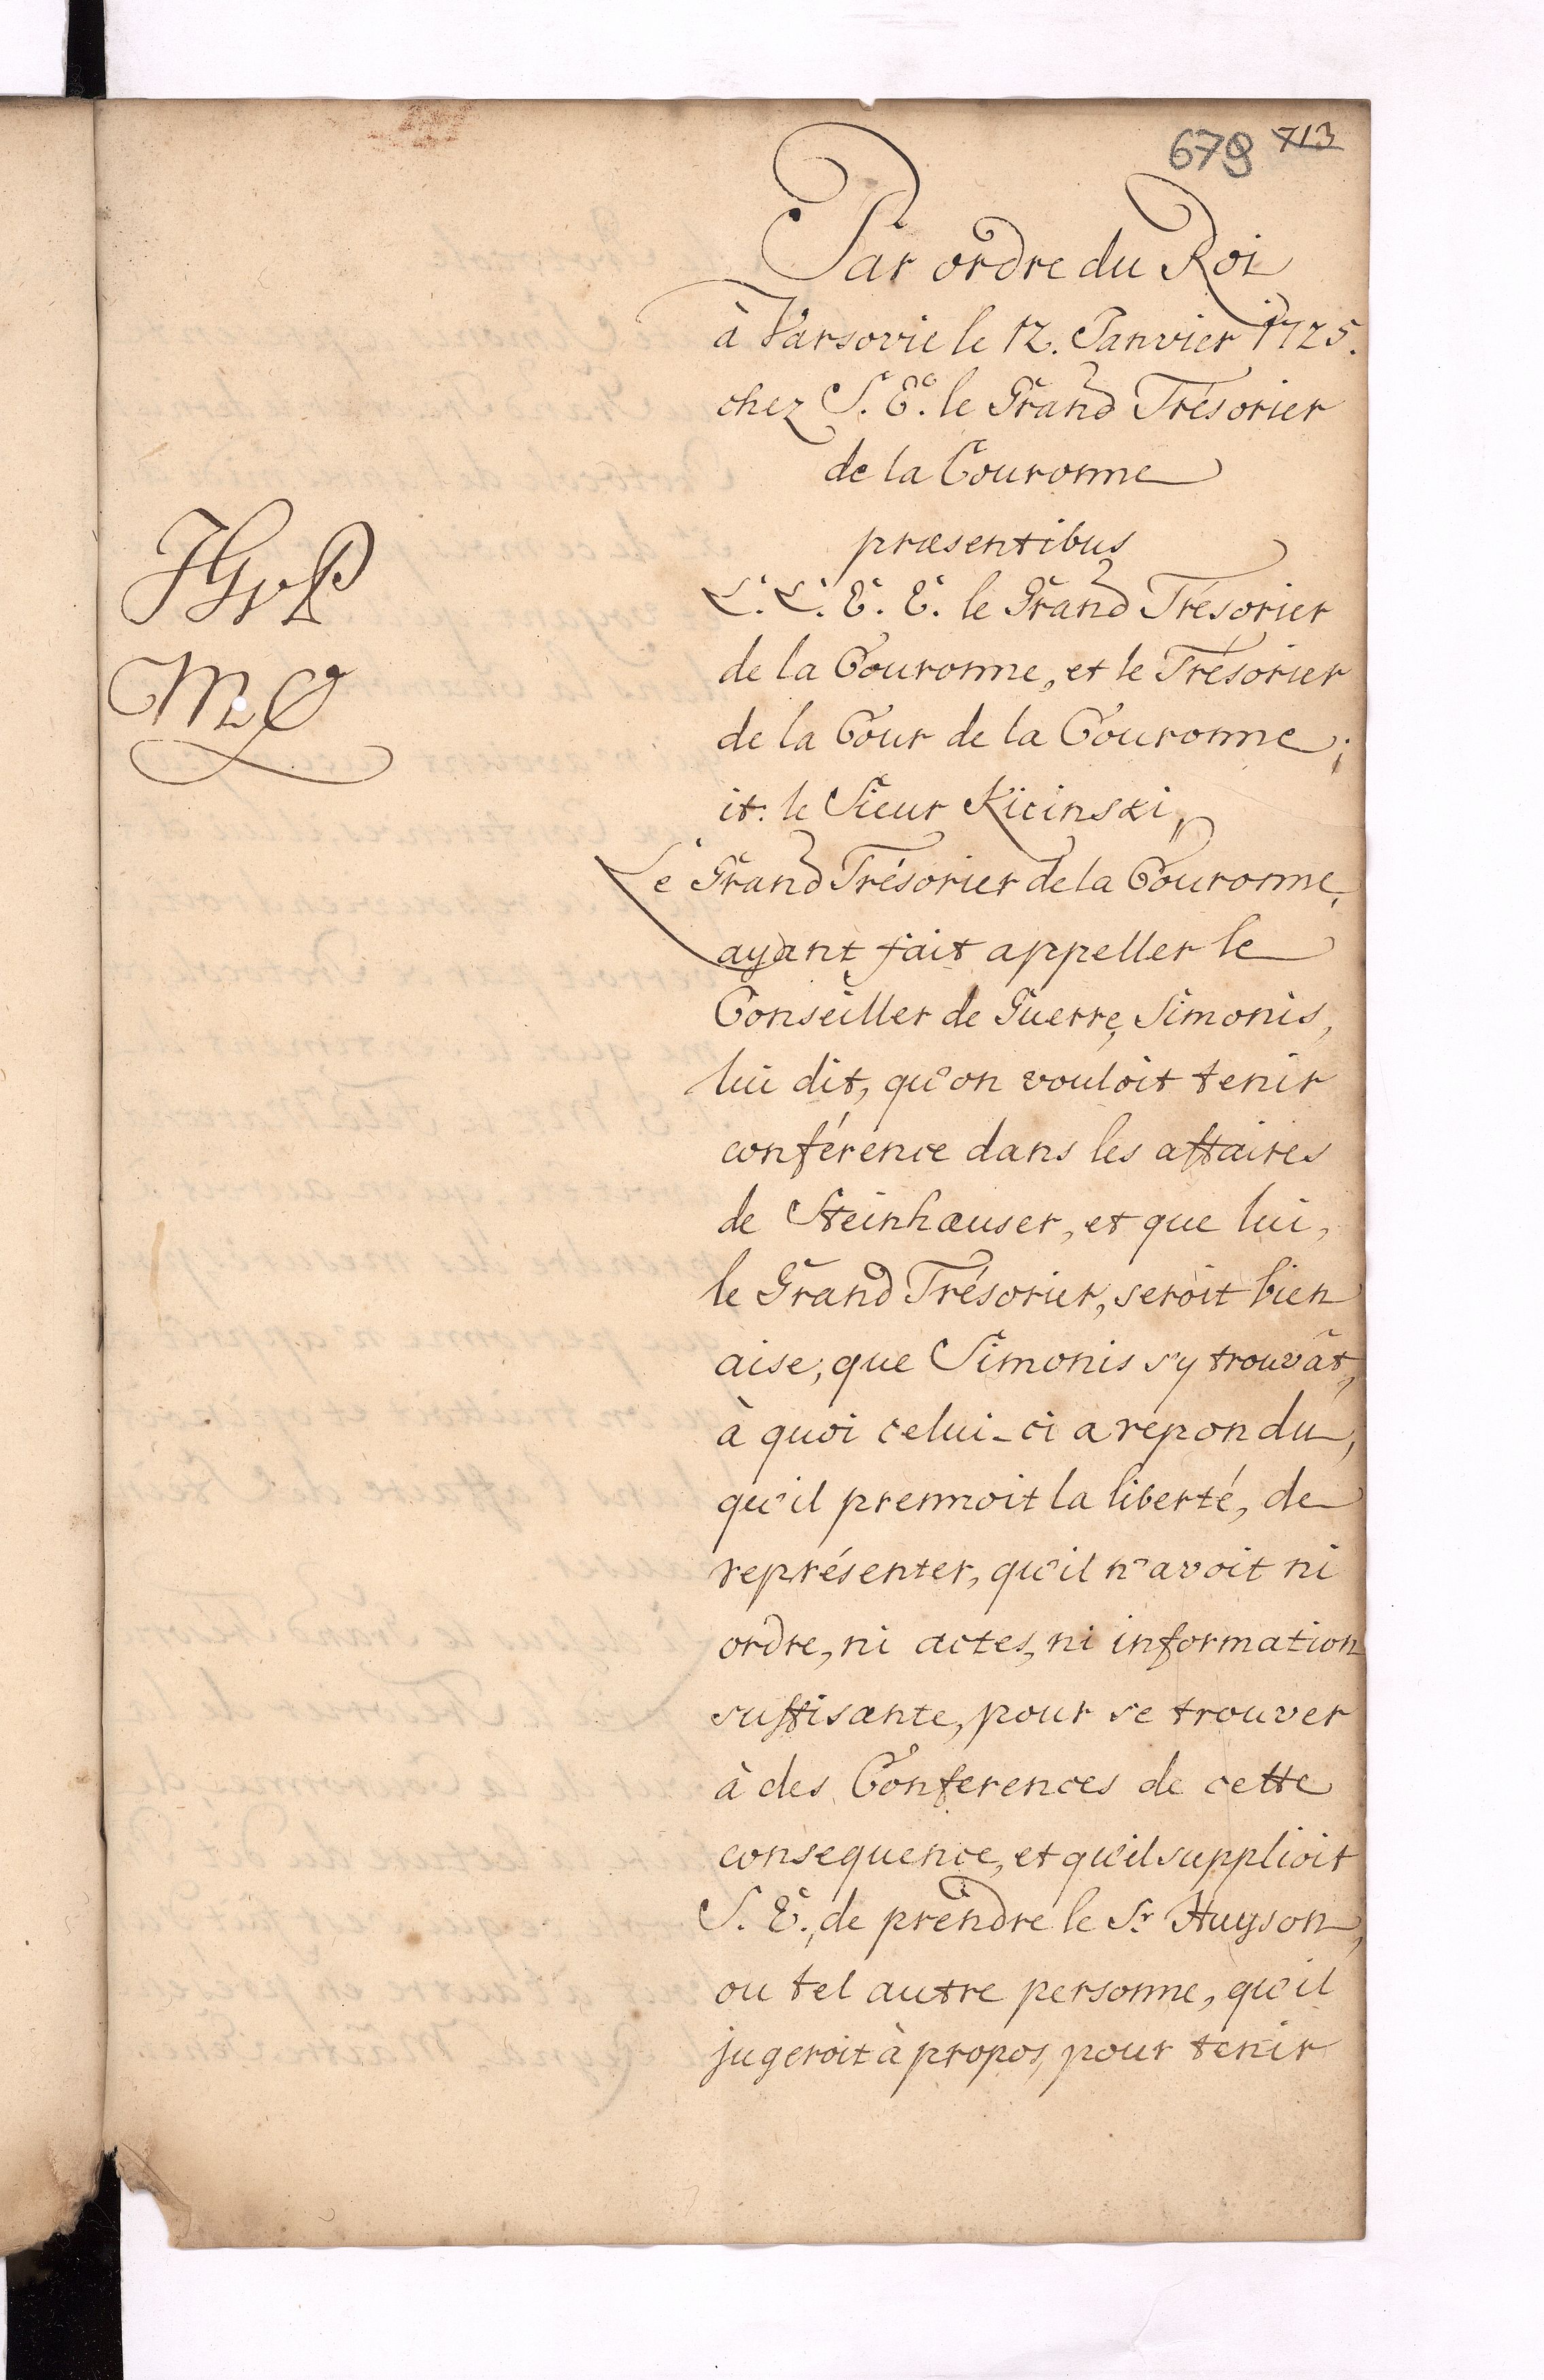 679 713
Par ordre du Roi
à Varsovie le 12. Janvier 1725.
chez S. E. le Grand Trésorier
de la Couronne
præsentibus
L. L. E. E. le Grand Trésorier
de la Couronne, et le Trésorier
de la Cour de la Couronne;
it: le Sieur Kicinski,
Le Grand Trésorier de la Couronne,
ayant fait appeller le
Conseiller de Guerre, Simonis,
lui dit, qu'on vouloit tenir
conférence dans les affaires
de Steinhæuser, et que lui,
le Grand Trésorier, seroit bien
aise, que Simonis s'y trouvât,
à quoi celui-ci a repondu,
qu'il prennoit la liberté, de
représenter, qu'il n'avoit ni
ordre, ni actes, ni information
suffisante, pour se trouver
à des Conferences de cette
consequence, et qu'il supplioit
S. E., de prendre le Sr Huyson,
ou tel autre personne, qu'il
jugeroit à propos, pour tenir